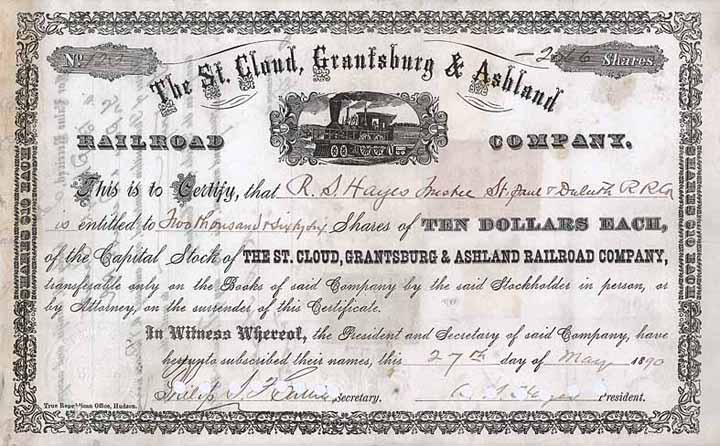 No. 120 2066 Shares
The St. Cloud, Grantsburg & Ashland
RAILROAD COMPANY.
SHARES $10 EACH SHARES $10 EACH
This is to Certify, that R. S. Hayes Trustee St. Paul & Duluth R R Co
is entitled to Two thousand & Sixty six Shares of TEN DOLLARS EACH,
of the Capital Stock of THE ST. CLOUD, GRANTSBURG & ASHLAND RAILROAD COMPANY,
transferable only on the Books of said Company by the said Stockholder in person, or
by Attorney, on the surrender of this Certificate.
In Witness Whereof, the President and Secretary of said Company, have
hereunto subscribed their names, this 27th day of May 1890
Philip S. Harris, Secretary. President.
True Republican Office, Hudson.